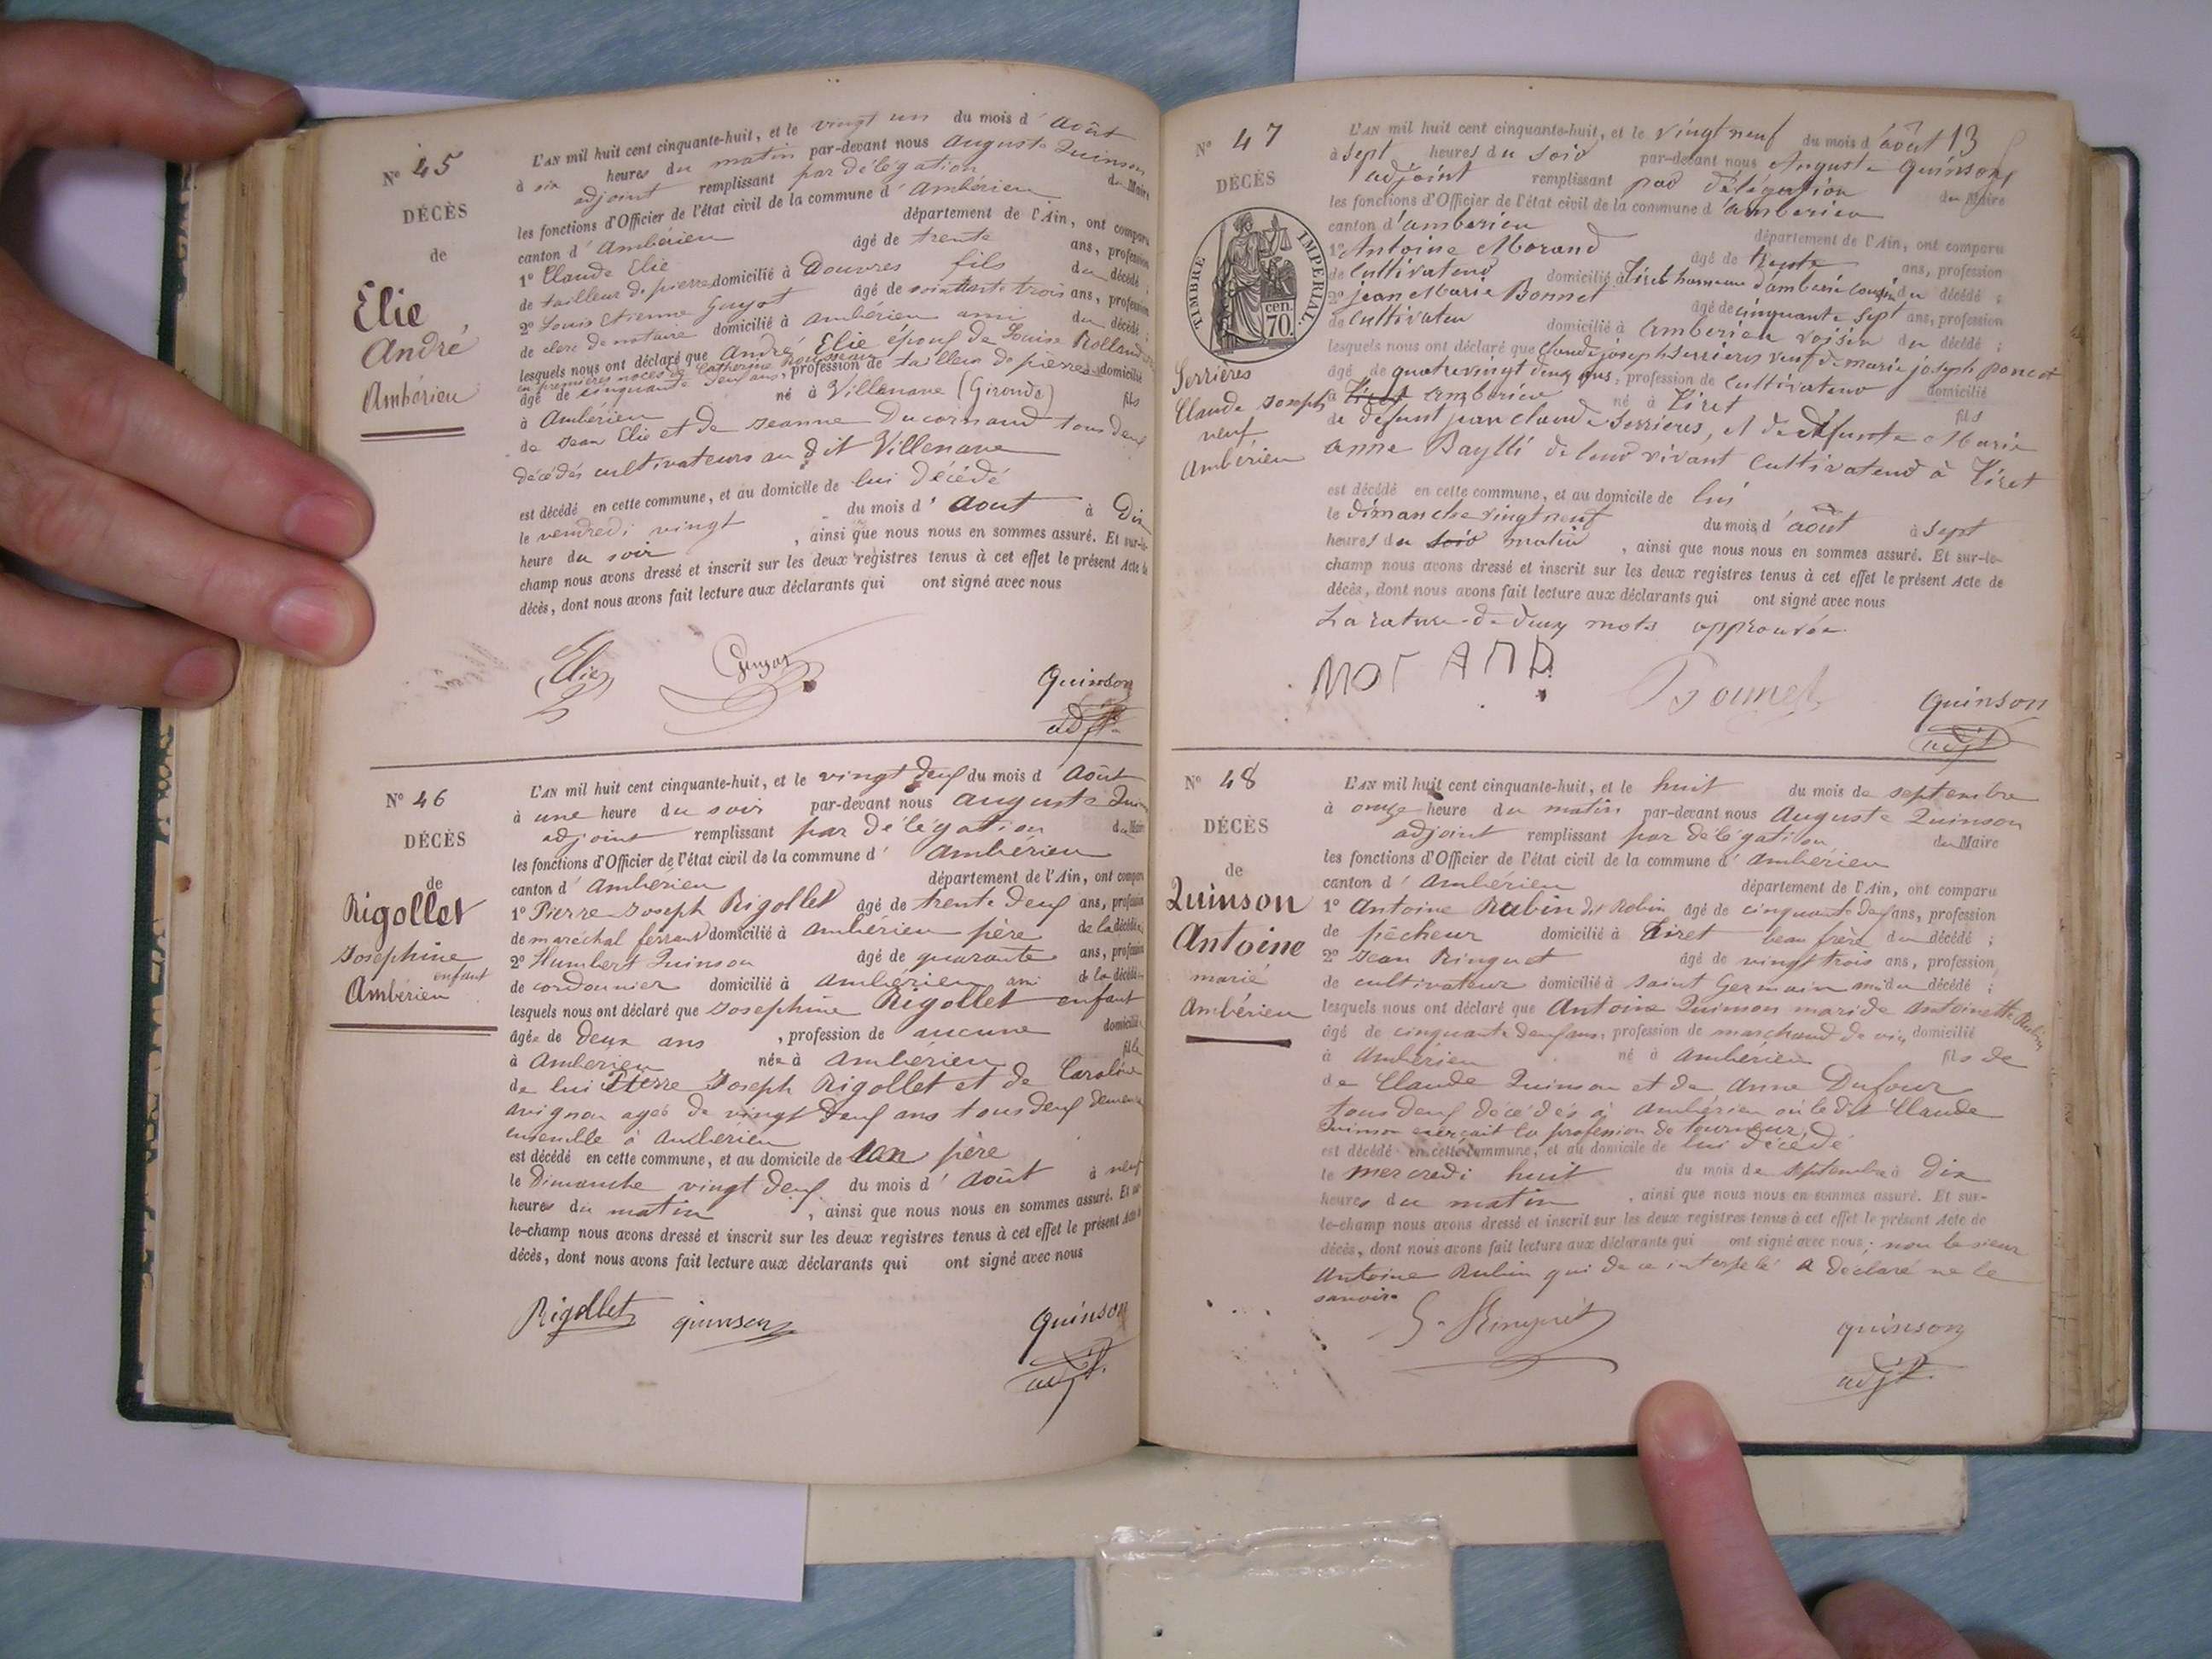 N° 45
DÉCÈS
de
Elie
André
Ambérieu
L'AN mil huit cent cinquante-huit, et le vingt un du mois d' Août
à six heures du matin par-devant nous Auguste Quinson
adjoint remplissant par délégation du Maire
les fonctions d'Officier de l'état civil de la commune d' Ambérieu
canton d' Ambérieu département de l'Ain, ont comparu
1° Claude Elie âgé de trente ans, profession
de tailleur de pierres domicilié à Douvres fils du décédé ;
2° Louis Etienne Guyot âgé de soixante trois ans, profession
de clerc de notaire domicilié à Ambérieu ami du décédé ;
lesquels nous ont déclaré que André Elie époux de Louise Rolland
en premières noces de Catherine
âgé de cinquante deux ans, profession de tailleur de pierres domicilié
à Ambérieu né à Villenave (Gironde) fils
de Jean Elie et de Jeanne Ducornaud tous deux
décédés cultivateurs au dit Villenave
est décédé en cette commune, et au domicile de lui décédé
le vendredi vingt du mois d' Aout à Dix
heure du soir , ainsi que nous nous en sommes assuré. Et sur-le-
champ nous avons dressé et inscrit sur les deux registres tenus à cet effet le présent Acte de
décès, dont nous avons fait lecture aux déclarants qui ont signé avec nous
Elie Guyot Quinson
adjt
N° 46
DÉCÈS
de
Rigollet
Josephine
enfant
Ambérieu
L'AN mil huit cent cinquante-huit, et le vingt deux du mois d Août
à une heure du soir par-devant nous Auguste Quin
adjoint remplissant par délégation du Maire
les fonctions d'Officier de l'état civil de la commune d' Ambérieu
canton d' Ambérieu département de l'Ain, ont comparu
1° Pierre Joseph Rigollet âgé de trente deux ans, profession
de maréchal ferrand domicilié à Ambérieu père de la décédée
2° Humbert Quinson âgé de quarante ans, profession
de cordonnier domicilié à Ambérieu ami de la décédée
lesquels nous ont déclaré que Josephine Rigollet enfant
âgée de deux ans , profession de aucune domicilié
à Ambérieu née à Ambérieu fille
de lui Pierre Joseph Rigollet et de Caroline
Avignon agée de vingt deux ans tous deux demeu
ensemble à Ambérieu
est décédé en cette commune, et au domicile de son père
le Dimanche vingt deux du mois d' Août à neuf
heures du matin , ainsi que nous nous en sommes assuré. Et sur-
le-champ nous avons dressé et inscrit sur les deux registres tenus à cet effet le présent Acte de
décès, dont nous avons fait lecture aux déclarants qui ont signé avec nous
Rigollet quinson Quinson
adjt.
N° 47
DÉCÈS
TIMBRE IMPERIAL.
70 cen.
Serrieres
Claude Joseph
veuf
Ambérieu
L'AN mil huit cent cinquante-huit, et le vingt neuf du mois d'août 13
à sept heures du soir par-devant nous Auguste Quinson
adjoint remplissant par délégation du Maire
les fonctions d'Officier de l'état civil de la commune d'amberieu
canton d'amberieu département de l'Ain, ont comparu
1° Antoine Morand âgé de trente ans, profession
de Cultivateur domicilié à Tiret hameau d'amberieu cousin du décédé ;
2° jean Marie Bonnet âgé de cinquante sept ans, profession
de Cultivateu domicilié à amberieu voisin du décédé ;
lesquels nous ont déclaré que Claude joseph Serrieres veuf de marie joseph poncet
âgé de quatrevingt deux ans, profession de Cultivateur domicilié
à Tiret amberieu né à Tiret fils
de défunt jean claude Serrieres, et de défunte Marie
anne Baylli de leur vivant Cultivateurs à Tiret
est décédé en cette commune, et au domicile de lui
le dimanche vingt neuf du mois d'août à sept
heures du soir matin , ainsi que nous nous en sommes assuré. Et sur-le-
champ nous avons dressé et inscrit sur les deux registres tenus à cet effet le présent Acte de
décès, dont nous avons fait lecture aux déclarants qui ont signé avec nous
La rature de deux mots approuvée
MORAND Bonnet Quinson
adjt
N° 48
DÉCÈS
de
Quinson
Antoine
marié
Ambérieu
L'AN mil huit cent cinquante-huit, et le huit du mois de septembre
à onze heure du matin par-devant nous Auguste Quinson
adjoint remplissant par délégation du Maire
les fonctions d'Officier de l'état civil de la commune d' Ambérieu
canton d' Ambérieu département de l'Ain, ont comparu
1° Antoine Rubin dit Robin âgé de cinquante deux ans, profession
de pêcheur domicilié à Tiret beau frère du décédé ;
2° Jean Ringuet âgé de vingt trois ans, profession
de cultivateur domicilié à Saint Germain ami du décédé ;
lesquels nous ont déclaré que Antoine Quinson mari de Antoinette Rubin
âgé de cinquante deux ans, profession de marchand de vin domicilié
à Ambérieu né à Ambérieu fils de
de Claude Quinson et de Anne Dufour
tous deux décédés à Ambérieu où le dit Claude
Quinson exerçait la profession de tourneur,
est décédé en cette commune, et au domicile de lui décédé
le mercredi huit du mois de septembre à Dix
heures du matin , ainsi que nous nous en sommes assuré. Et sur-
le-champ nous avons dressé et inscrit sur les deux registres tenus à cet effet le présent Acte de
décès, dont nous avons fait lecture aux déclarants qui ont signé avec nous ; non le sieur
Antoine Rubin qui de ce interpelé a déclaré ne le
savoir.
Ringuet quinson
adjt.